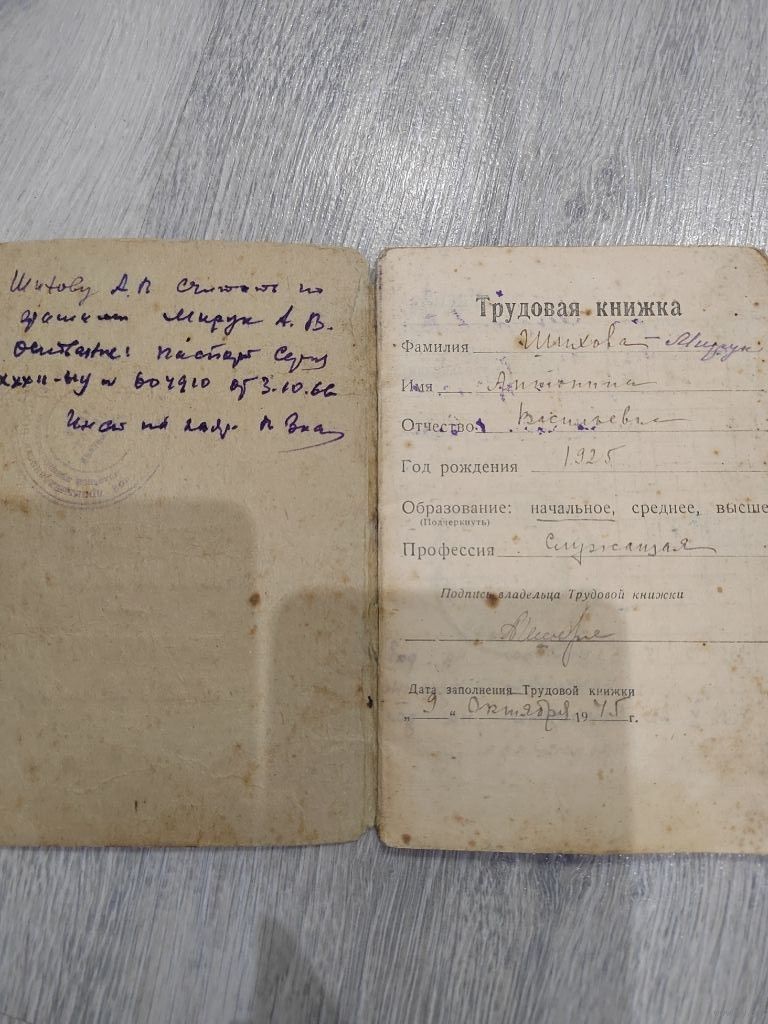 Шихову А.В. считать по
Мирук А.В.
основание: паспорт серия
XXXII-НУ № 604910 от 3.10.66
Инсп по кадр.
Трудовая книжка
Фамилия Шихова - Мирук
Имя Антонина
Отчество Васильевна
Год рождения 1925
Образование: начальное, среднее, высше
(Подчеркнуть)
Профессия Служащая
Подпись владельца Трудовой книжки
Дата заполнения Трудовой книжки
„ 9 “ Октября 1945 г.